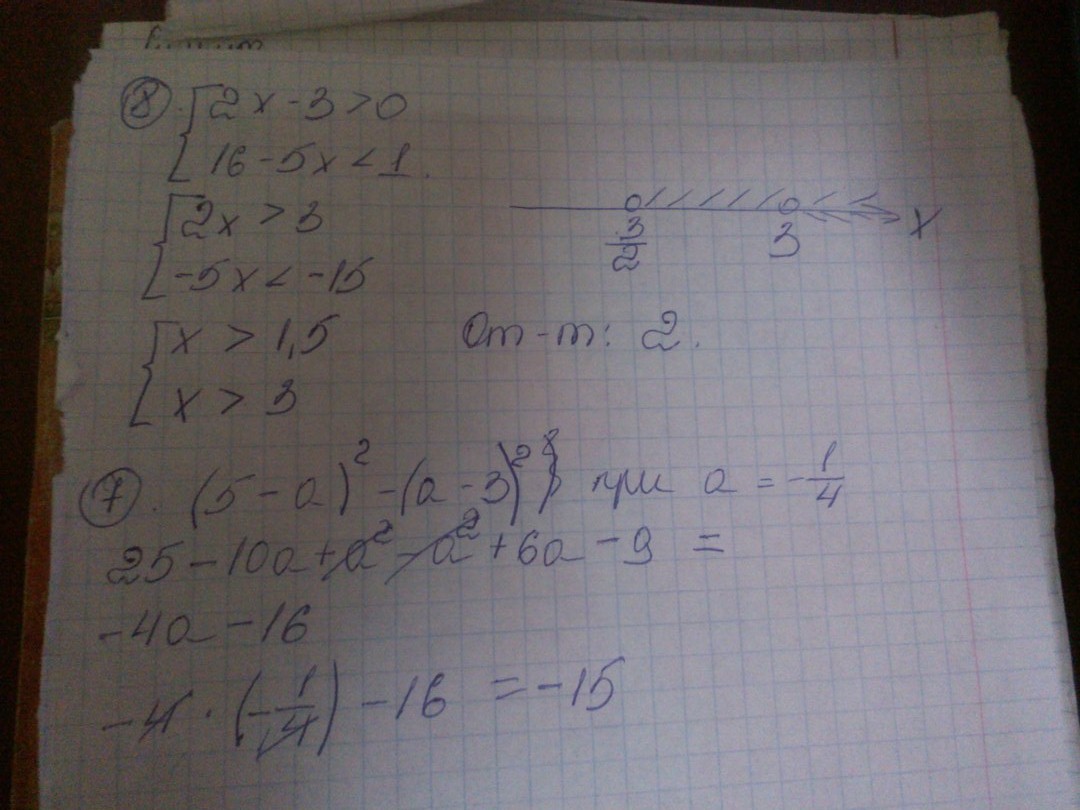 8. { 2x - 3 > 0
16 - 5x < 1.
{ 2x > 3
-5x < -15
3/2 3 x
{ x > 1,5
x > 3
От-т: 2.
7. (5 - a)² - (a - 3)² при a = -1/4
25 - 10a + a² - a² + 6a - 9 =
-4a - 16
-4 · (-1/4) - 16 = -15